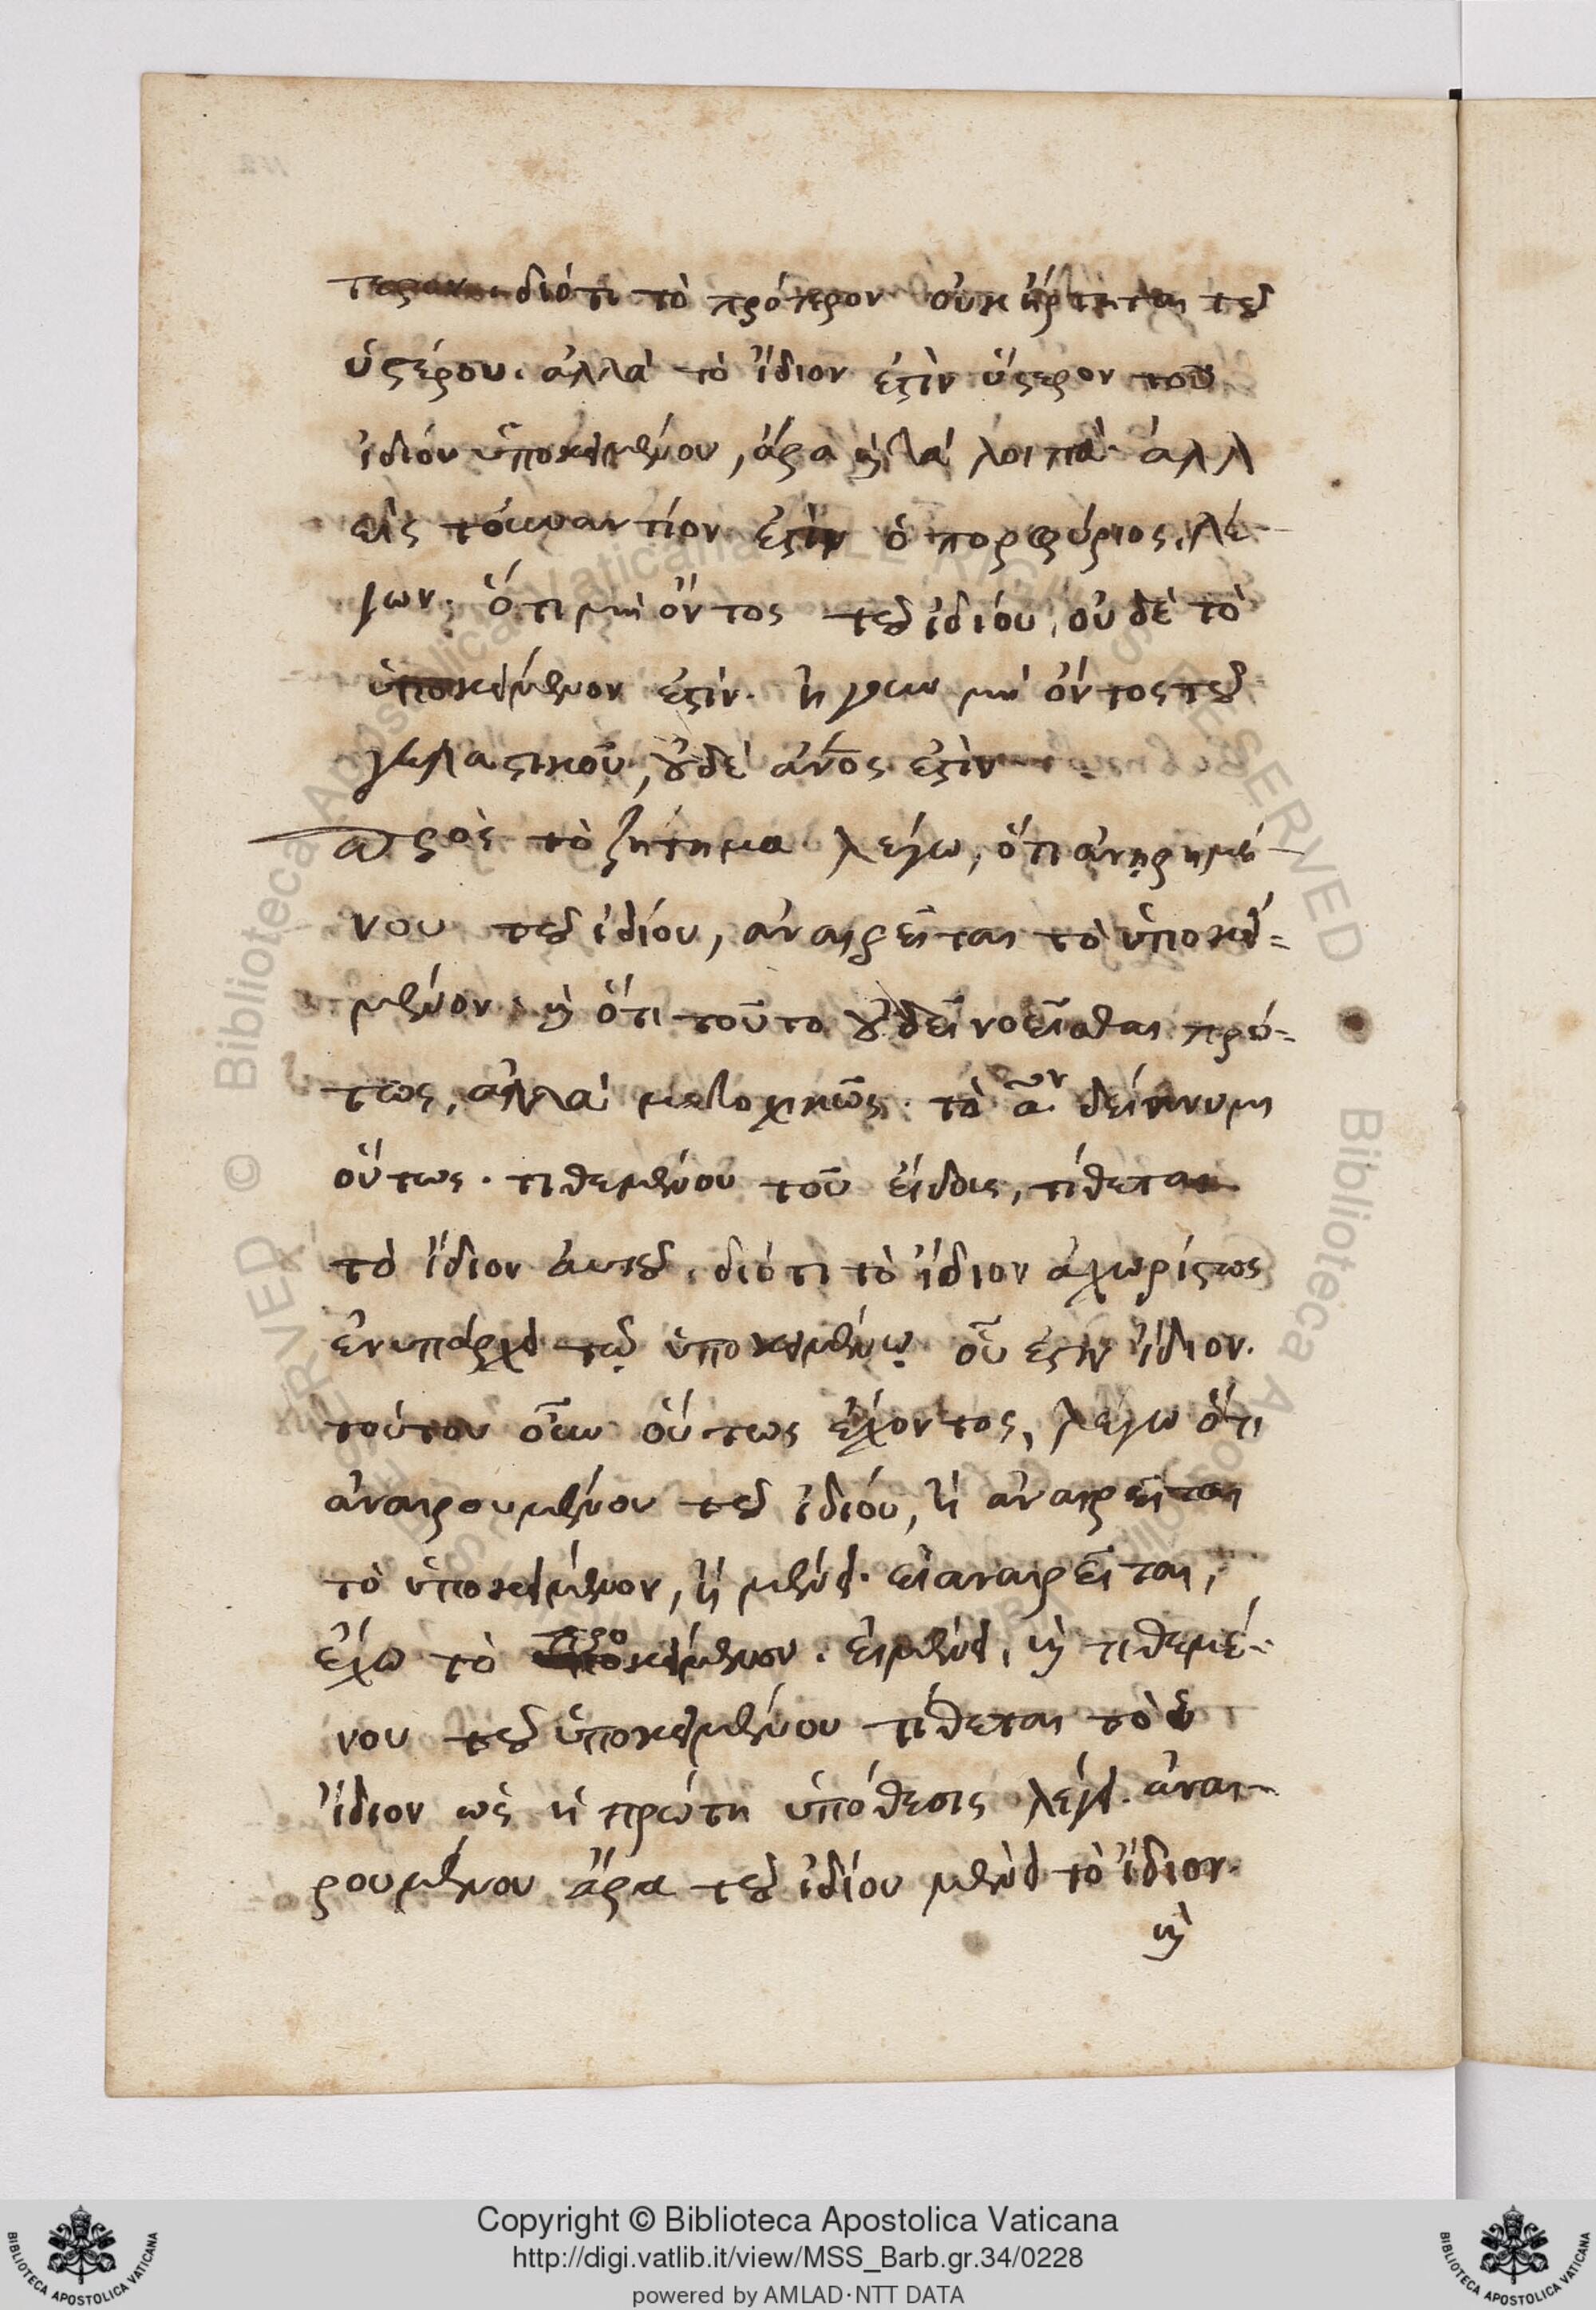 διότι τὸ πρότερον οὐκ ἤρτηται τοῦ
ὑστέρου. ἀλλὰ τὸ ἴδιον ἐστὶν ὕστερον τοῦ
ἰδίου ὑποκειμένου, ἄρα καὶ τὰ λοιπά. ἀλλ
εἰς τοὐναντίον ἐστὶν ὁ πορφύριος, λέ-
γων. ὅτι μὴ ὄντος τοῦ ἰδίου, οὐδὲ τὸ
ὑποκείμενον ἐστίν. ἤγουν μὴ ὄντος τοῦ
γελαστικοῦ, οὐδὲ ἄνος ἐστὶν
Πρὸς τὸ ζήτημα λέγω, ὅτι ἀνῃρημέ-
νου τοῦ ἰδίου, ἀναιρεῖται τὸ ὑποκεί=
μενον. καὶ ὅτι τοῦτο οὐ δεῖ νοεῖσθαι πρώ-
τως, ἀλλὰ μετοχικῶς. τὸ ᾶον δείκνυμι
οὕτως. τιθεμένου τοῦ εἴδους, τίθεται
τὸ ἴδιον αὐτοῦ. διότι τὸ ἴδιον ἀχωρίστως
ἐνυπάρχει τῷ ὑποκειμένῳ οὗ ἐστὶν ἴδιον.
τούτου οὖν οὕτως ἔχοντος, λέγω ὅτι
ἀναιρουμένου τοῦ ἰδίου, ἢ ἀναιρεῖται
τὸ ὑποκείμενον, ἢ μένει. εἰ ἀναιρεῖται,
ἔχω τὸ προκείμενον. εἰ μένει, καὶ τιθεμέ-
νου τοῦ ὑποκειμένου τίθεται τὸ
ἴδιον ὡς ἡ πρώτη ὑπόθεσις λέγει. ἀναι-
ρουμένου ἄρα τοῦ ἰδίου μένει τὸ ἴδιον.
καὶ
Copyright © Biblioteca Apostolica Vaticana
http://digi.vatlib.it/view/MSS_Barb.gr.34/0228
powered by AMLAD·NTT DATA